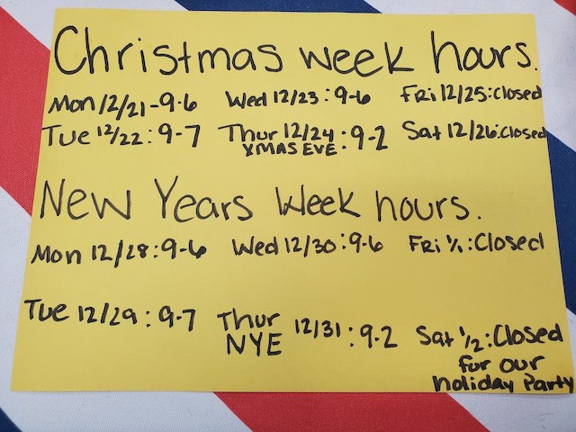 Christmas week hours.
Mon 12/21-9-6 Wed 12/23:9-6 Fri 12/25:Closed
Tue 12/22:9-7 Thur 12/24:9-2 Sat 12/26:Closed
XMAS EVE
New Years Week hours.
Mon 12/28:9-6 Wed 12/30:9-6 Fri 1/1:Closed
Tue 12/29:9-7 Thur 12/31:9-2 Sat 1/2:Closed
NYE for our
holiday Party